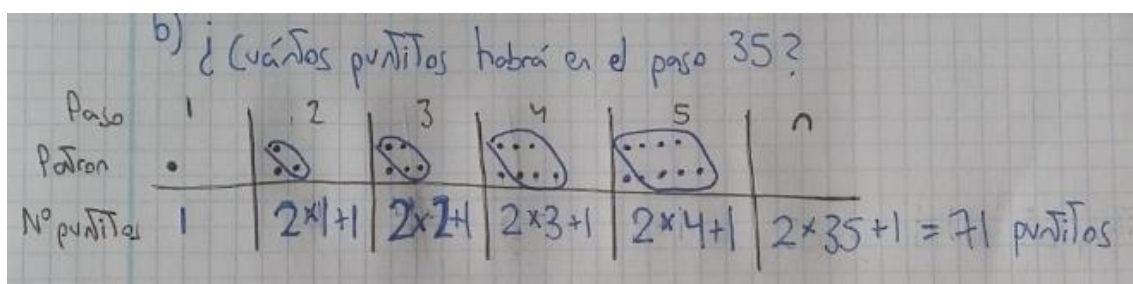 b) ¿Cuántos puntitos habrá en el paso 35?
Paso 1 2 3 4 5 n
Patron
Nº puntitos 1 2×1+1 2×2+1 2×3+1 2×4+1 2×35+1 = 71 puntitos